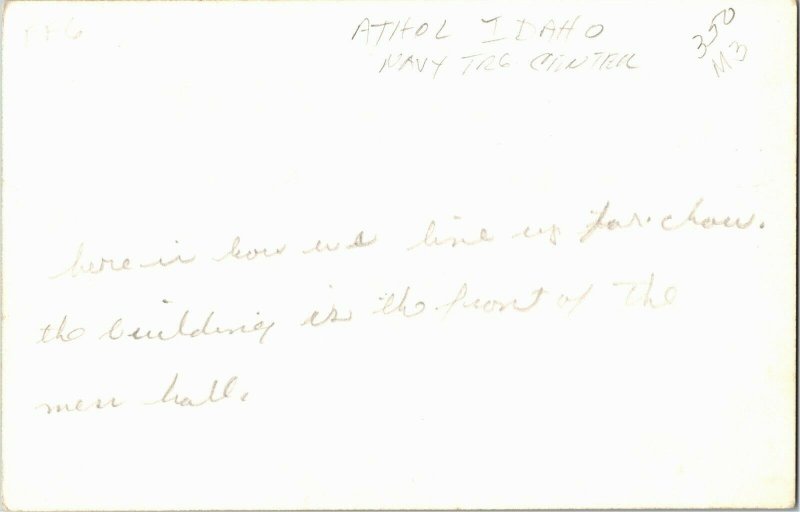 ATHOL IDAHO
NAVY TRG. CENTER
350
M3
here is how we line up for chow.
the building is the front of The
mess hall.